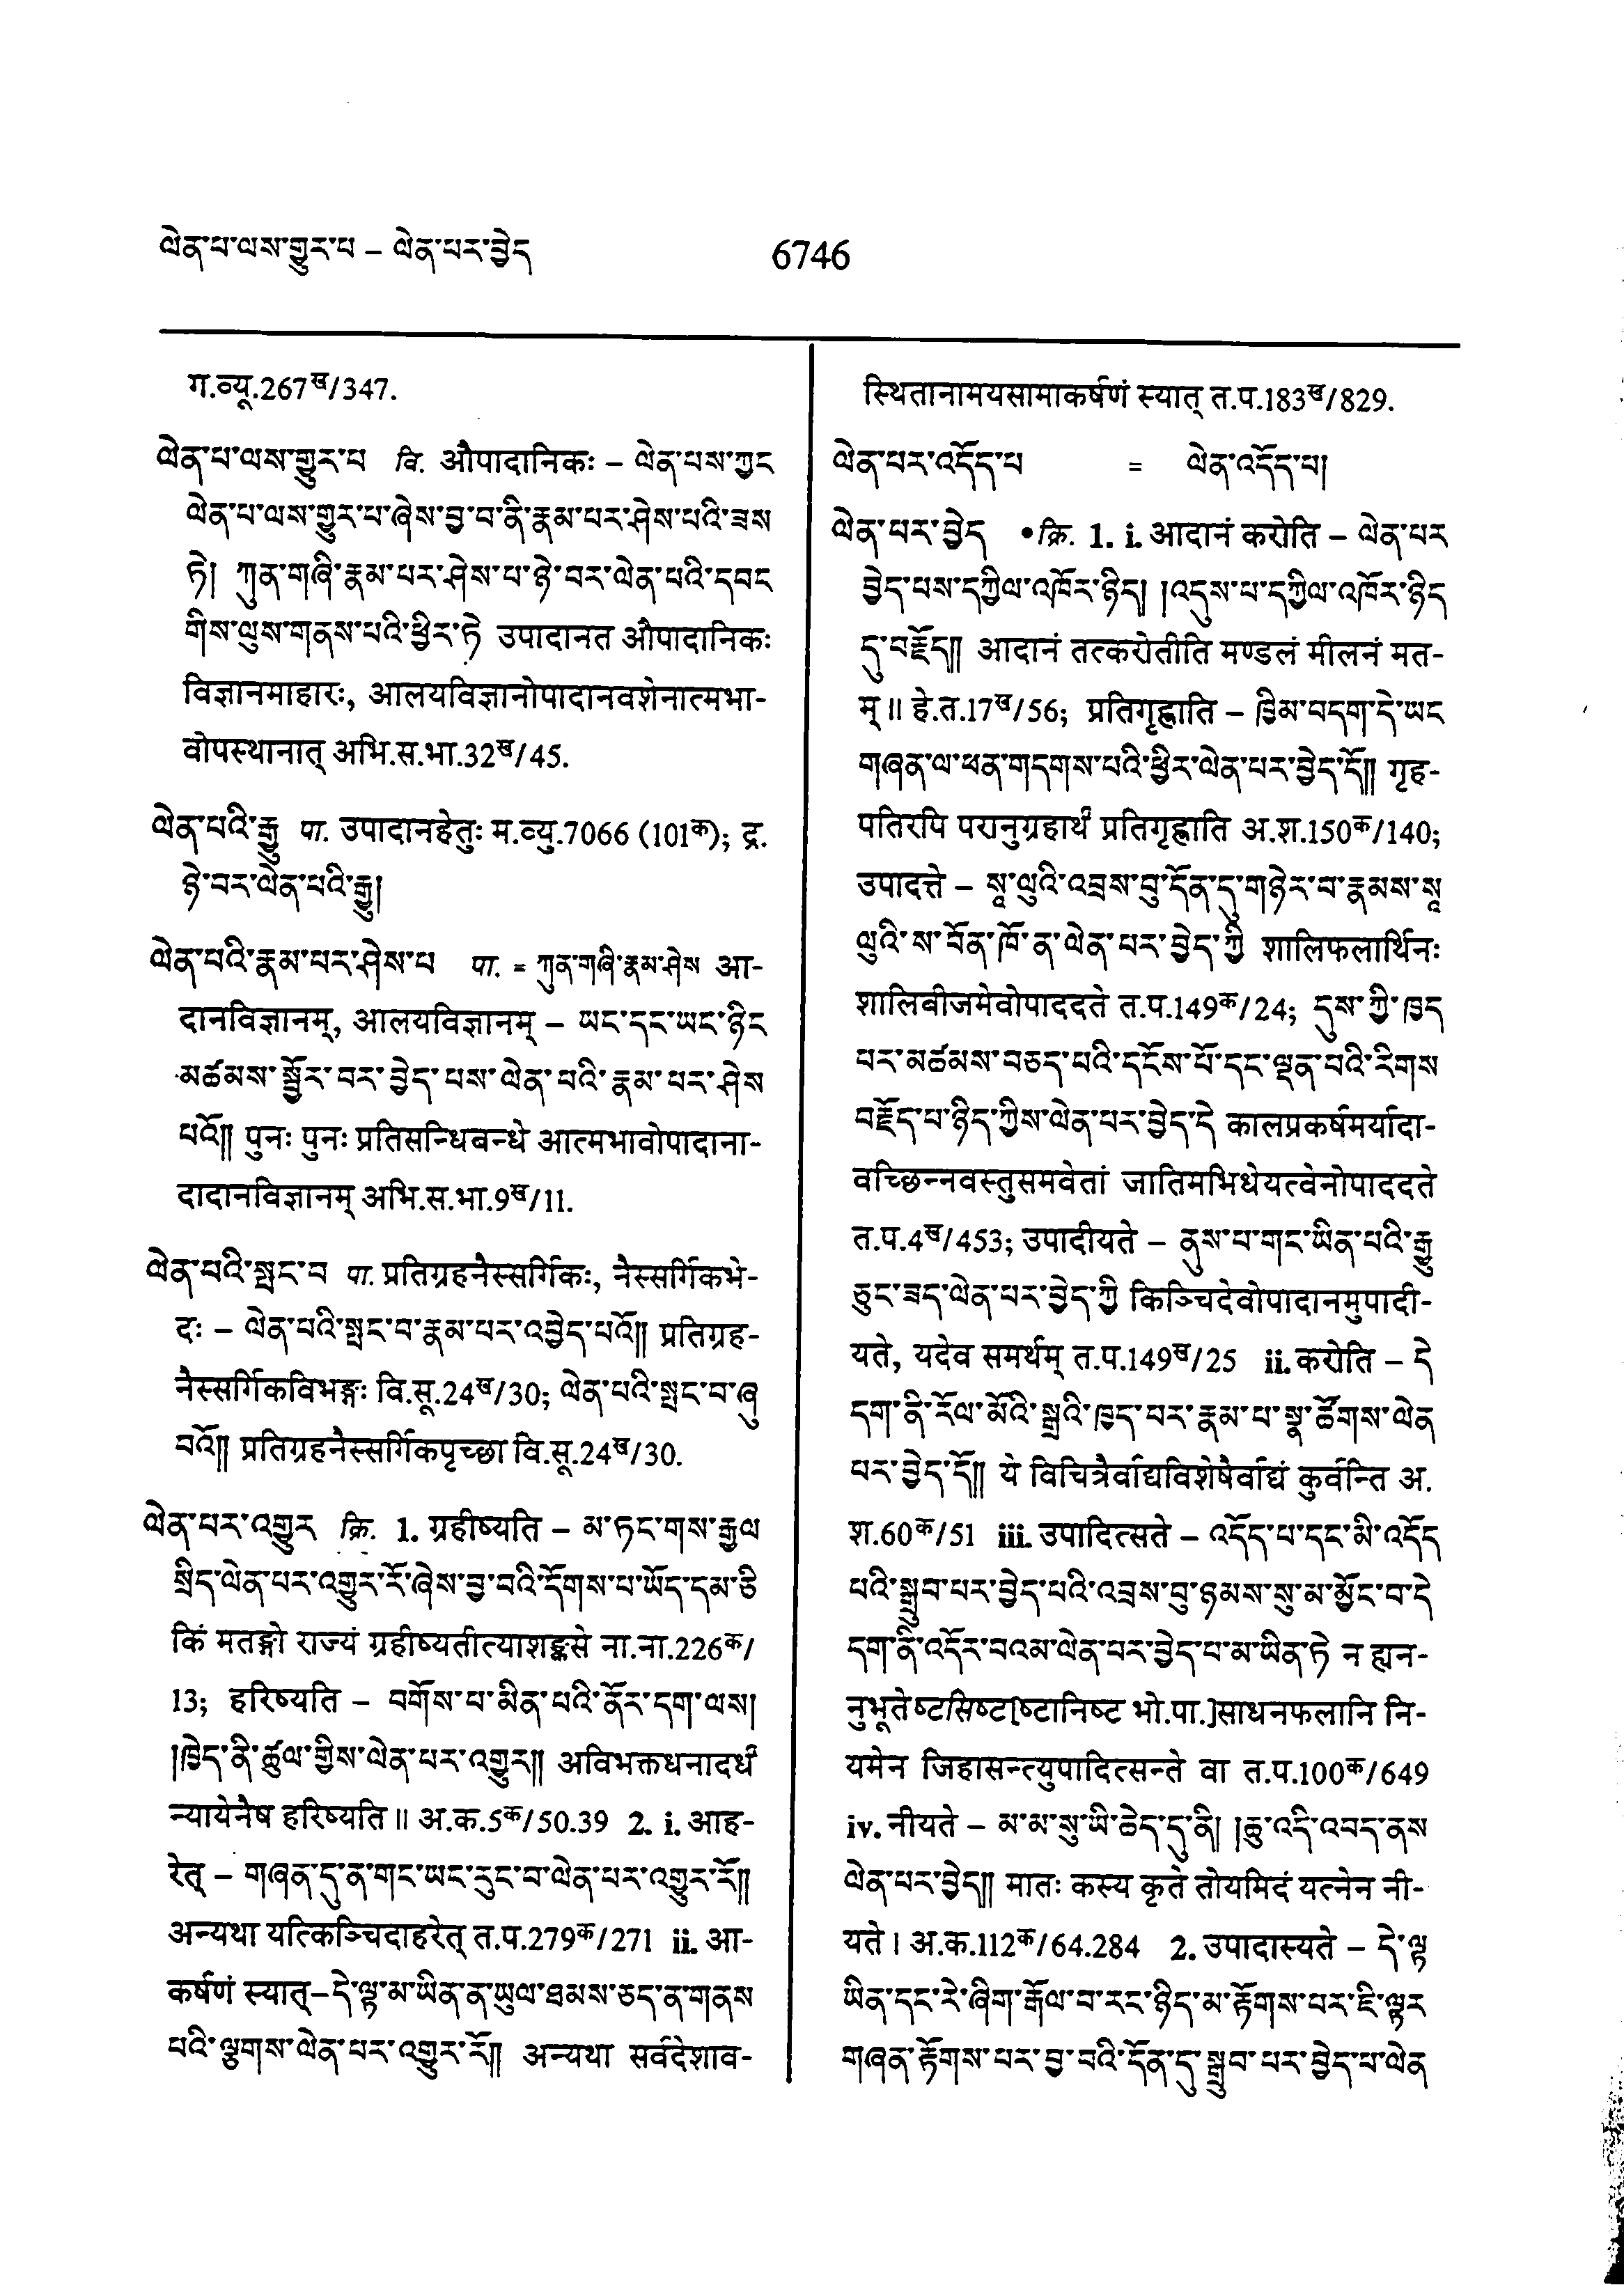 ལེན་པ་ལས་གྱུར་པ – ལེན་པར་བྱེད
6746
ग.व्यू.267ख/347.
ལེན་པ་ལས་གྱུར་པ वि. औपादानिकः – ལེན་པས་ཀྱང
ལེན་པ་ལས་གྱུར་པ་ཞེས་བྱ་བ་ནི་རྣམ་པར་ཤེས་པའི་ཟས
ཏེ། ཀུན་གཞི་རྣམ་པར་ཤེས་པ་ཉེ་བར་ལེན་པའི་དབང
གིས་ལུས་གནས་པའི་ཕྱིར་ཏེ उपादानत औपादानिकः
विज्ञानमाहारः, आलयविज्ञानोपादानवशेनात्मभा-
वोपस्थानात् अभि.स.भा.32ख/45.
ལེན་པའི་རྒྱུ पा. उपादानहेतुः म.व्यु.7066 (101क); द्र.
ཉེ་བར་ལེན་པའི་རྒྱུ།
ལེན་པའི་རྣམ་པར་ཤེས་པ पा. = ཀུན་གཞི་རྣམ་ཤེས आ-
दानविज्ञानम्, आलयविज्ञानम् – ཡང་དང་ཡང་ཉིང
མཚམས་སྦྱོར་བར་བྱེད་པས་ལེན་པའི་རྣམ་པར་ཤེས
པའོ།། पुनः पुनः प्रतिसन्धिबन्धे आत्मभावोपादाना-
दादानविज्ञानम् अभि.स.भा.9ख/11.
ལེན་པའི་སྤང་བ पा. प्रतिग्रहनैस्सर्गिकः, नैस्सर्गिकभे-
दः – ལེན་པའི་སྤང་བ་རྣམ་པར་འབྱེད་པའོ།། प्रतिग्रह-
नैस्सर्गिकविभङ्गः वि.सू.24ख/30; ལེན་པའི་སྤང་བ་ཞུ
བའོ།། प्रतिग्रहनैस्सर्गिकपृच्छा वि.सू.24ख/30.
ལེན་པར་འགྱུར क्रि. 1. ग्रहीष्यति – མ་ཏང་གས་རྒྱལ
སྲིད་ལེན་པར་འགྱུར་རོ་ཞེས་བྱ་བའི་དོགས་པ་ཡོད་དམ་ཅི
किं मतङ्गो राज्यं ग्रहीष्यतीत्याशङ्कसे ना.ना.226क/
13; हरिष्यति – བགོས་པ་མིན་པའི་ནོར་དག་ལས།
།ཁྱེད་ནི་ཚུལ་གྱིས་ལེན་པར་འགྱུར།། अविभक्तधनादर्धं
न्यायेनैष हरिष्यति ॥ अ.क.5क/50.39 2. i. आह-
रेत् – གཞན་དུ་ན་གང་ཡང་རུང་བ་ལེན་པར་འགྱུར་རོ།།
अन्यथा यत्किञ्चिदाहरेत् त.प.279क/271 ii. आ-
कर्षणं स्यात्–དེ་ལྟ་མ་ཡིན་ན་ཡུལ་ཐམས་ཅད་ན་གནས
པའི་ལྕགས་ལེན་པར་འགྱུར་རོ།། अन्यथा सर्वदेशाव-
स्थितानामयसामाकर्षणं स्यात् त.प.183ख/829.
ལེན་པར་འདོད་པ = ལེན་འདོད་པ།
ལེན་པར་བྱེད •क्रि. 1. i. आदानं करोति – ལེན་པར
བྱེད་པས་དཀྱིལ་འཁོར་ཉིད། །འདུས་པ་དཀྱིལ་འཁོར་ཉིད
དུ་བརྗོད།། आदानं तत्करोतीति मण्डलं मीलनं मत-
म् ॥ हे.त.17ख/56; प्रतिगृह्णाति – ཁྱིམ་བདག་དེ་ཡང
གཞན་ལ་ཕན་གདགས་པའི་ཕྱིར་ལེན་པར་བྱེད་དོ།། गृह-
पतिरपि परानुग्रहार्थं प्रतिगृह्णाति अ.श.150क/140;
उपादत्ते – སཱ་ལུའི་འབྲས་བུ་དོན་དུ་གཉེར་བ་རྣམས་སཱ
ལུའི་ས་བོན་ཁོ་ན་ལེན་པར་བྱེད་ཀྱི शालिफलार्थिनः
शालिबीजमेवोपाददते त.प.149क/24; དུས་ཀྱི་ཁྱད
པར་མཚམས་བཅད་པའི་དངོས་པོ་དང་ལྡན་པའི་རིགས
བརྗོད་པ་ཉིད་ཀྱིས་ལེན་པར་བྱེད་དེ कालप्रकर्षमर्यादा-
वच्छिन्नवस्तुसमवेतां जातिमभिधेयत्वेनोपाददते
त.प.4ख/453; उपादीयते – ནུས་པ་གང་ཡིན་པའི་རྒྱུ
ཅུང་ཟད་ལེན་པར་བྱེད་ཀྱི किञ्चिदेवोपादानमुपादी-
यते, यदेव समर्थम् त.प.149ख/25 ii. करोति – དེ
དག་ནི་རོལ་མོའི་སྒྲའི་ཁྱད་པར་རྣམ་པ་སྣ་ཚོགས་ལེན
པར་བྱེད་དོ།། ये विचित्रैर्वाद्यविशेषैर्वाद्यं कुर्वन्ति अ.
श.60क/51 iii. उपादित्सते – འདོད་པ་དང་མི་འདོད
པའི་སྒྲུབ་པར་བྱེད་པའི་འབྲས་བུ་ཉམས་སུ་མ་མྱོང་བ་དེ
དག་ནི་འདོར་བའམ་ལེན་པར་བྱེད་པ་མ་ཡིན་ཏེ न ह्यन-
नुभूतेष्टसिष्ट[ष्टानिष्ट भो.पा.]साधनफलानि नि-
यमेन जिहासन्त्युपादित्सन्ते वा त.प.100क/649
iv. नीयते – མ་མ་སུ་ཡི་ཆེད་དུ་ནི། །ཆུ་འདི་འབད་ནས
ལེན་པར་བྱེད།། मातः कस्य कृते तोयमिदं यत्नेन नी-
यते । अ.क.112क/64.284 2. उपादास्यते – དེ་ལྟ
ཡིན་དང་རེ་ཞིག་རྒོལ་བ་རང་ཉིད་མ་རྟོགས་པར་ཇི་ལྟར
གཞན་རྟོགས་པར་བྱ་བའི་དོན་དུ་སྒྲུབ་པར་བྱེད་པ་ལེན